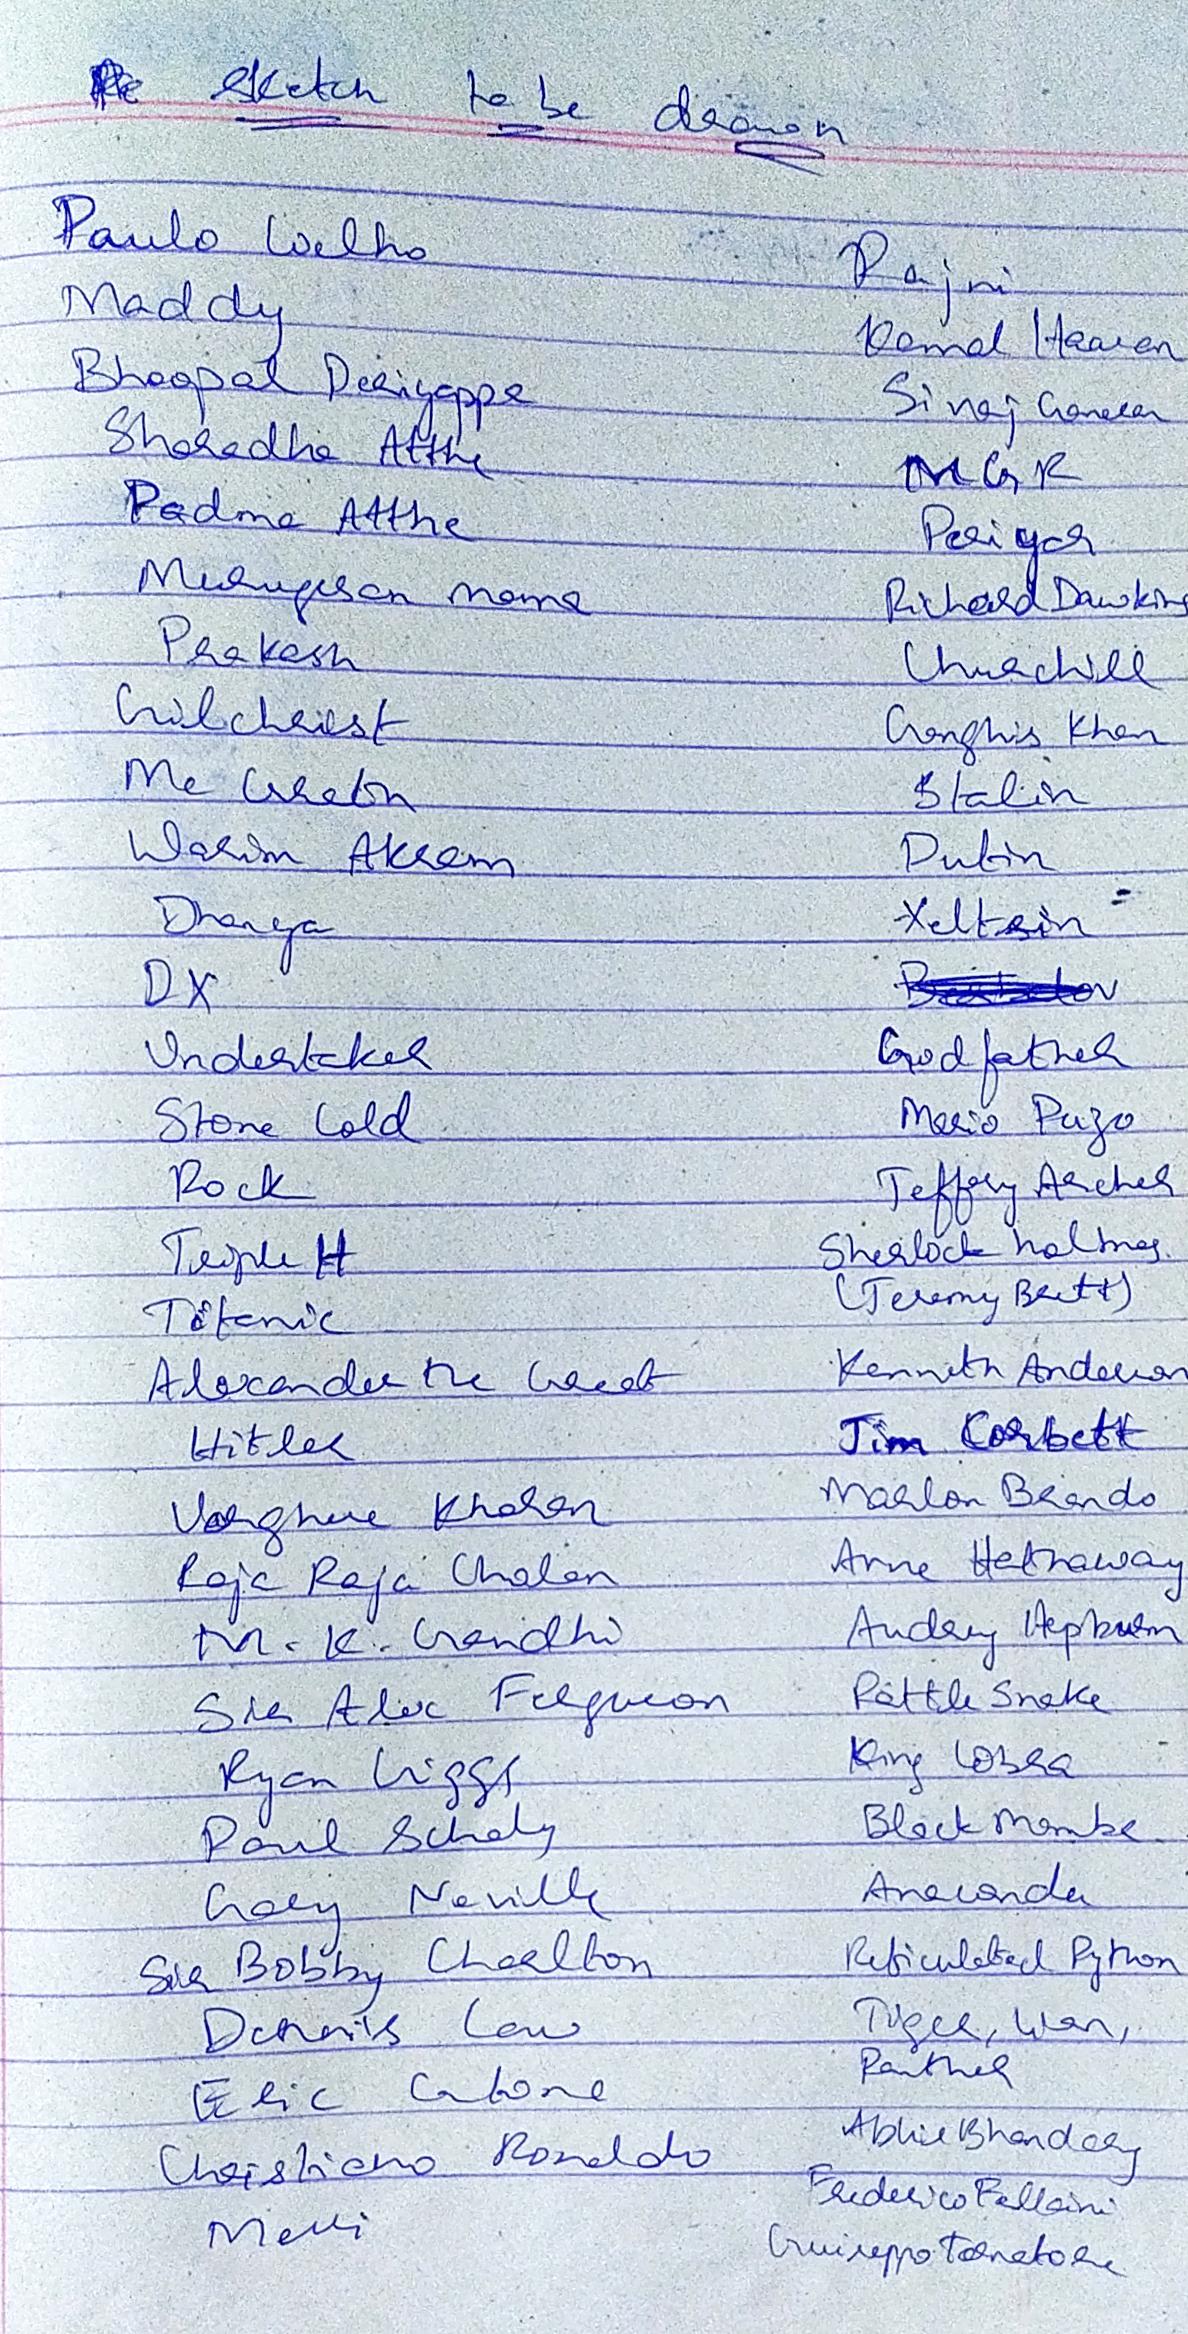 sketch to be drawn
Paulo Coelho
Maddy
Bhoopal Periyappa
Sharadha Atthe
Padma Atthe
Murugesan mama
Prakash
Gilchrist
Mc Grath
Wasim Akram
Dhanya
DX
Undertaker
Stone Cold
Rock
Triple H
Titanic
Alexander the Great
Hitler
Varghese Kharan
Raja Raja Cholan
M. K. Gandhi
Sir Alex Ferguson
Ryan Giggs
Paul Scholy
Gary Neville
Sir Bobby Charlton
Dennis Law
Eric Cantona
Christiano Ronaldo
Messi
Rajni
Kamal Haasan
Sivaj Ganesan
MGR
Periyar
Richard Dawkins
Churchill
Genghis Khan
Stalin
Putin
Yeltsin
Godfather
Mario Puzo
Jeffery Archer
Sherlock holmes.
(Jeremy Brett)
Kenneth Anderson
Jim Corbett
Marlon Brando
Anne Hathaway
Audrey Hepburn
Rattle Snake
King Cobra
Black Mamba
Anaconda
Reticulated Python
Tiger, Lion,
Panther
Bhandary
Frederico Fellini
Guiseppo Tornatore